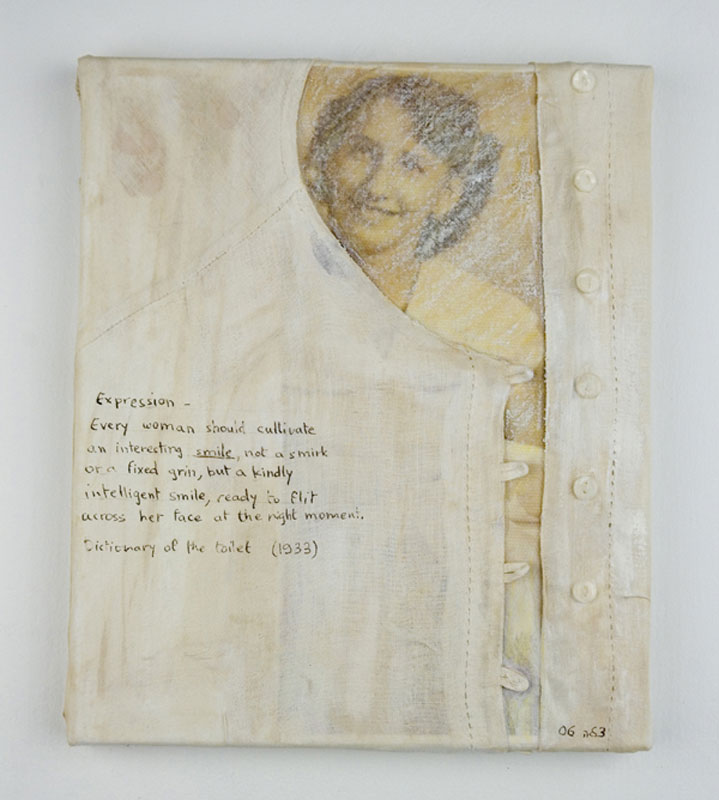 Expression -
Every woman should cultivate
an interesting smile, not a smirk
or a fixed grin, but a kindly
intelligent smile, ready to flit
across her face at the right moment.
Dictionary of the toilet (1933)
06